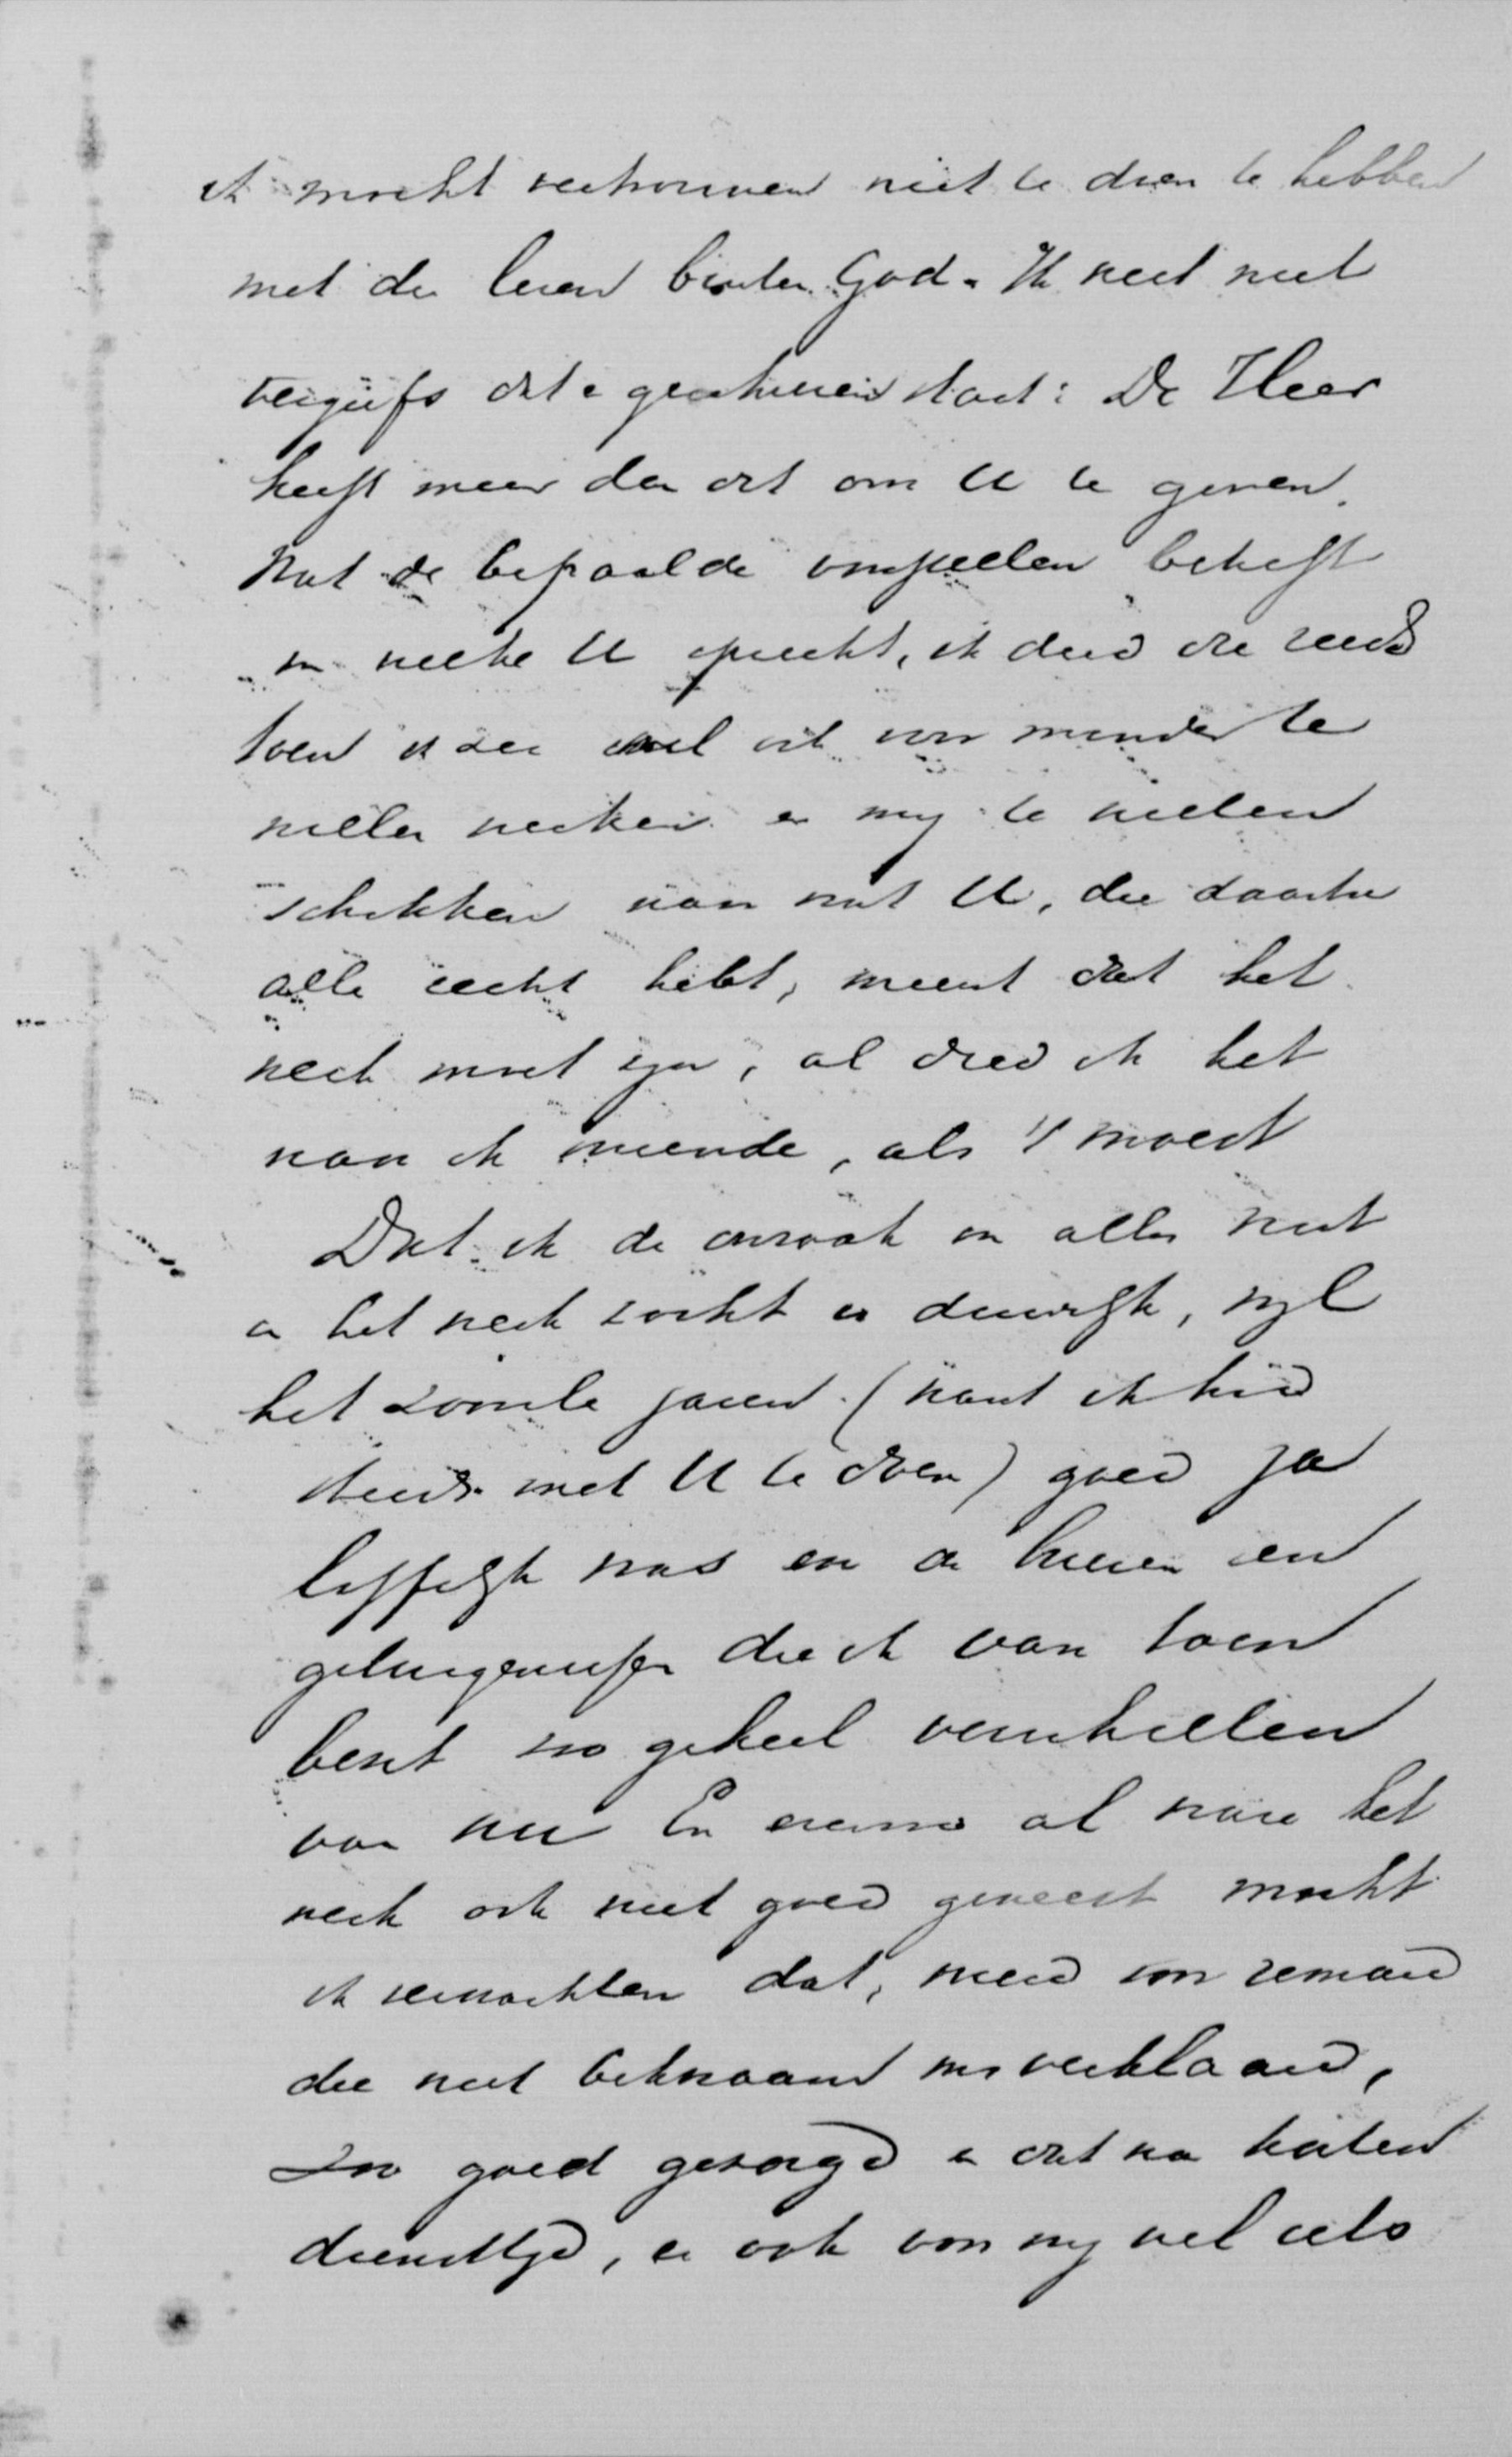 ik mocht vertrouwen niet te doen te hebben
met de heeren buiten God. Ik weet niet
vergeefs dat er geschreven staat: De Heer
heeft meer dan dat om U te geven.
Wat de bepaalde betreft
in welke U spreekt, ik deed die reeds
toen ik zei wel wat voor minder te
willen werken en mij te willen
schikken naar wat U, die daartoe
alle recht hebt, meent dat het
werk moet zijn, al deed ik het
naar ik meende, als 't moest
Dat ik de oorzaak van alles niet
in het werk zocht is duidelijk, wijl
het zoovele jaren (want ik had
steeds met U te doen) goed ja
loffelijk was en de brieven en
getuigenissen die ik van toen
bezit zoo geheel verschillen
van nu En al ware het
werk ook niet goed geweest mocht
ik verwachten dat, werd voor iemand
die niet bekwaam was verklaard,
zoo goed gezorgd en dat na
diensttijd, er ook voor mij wel iets